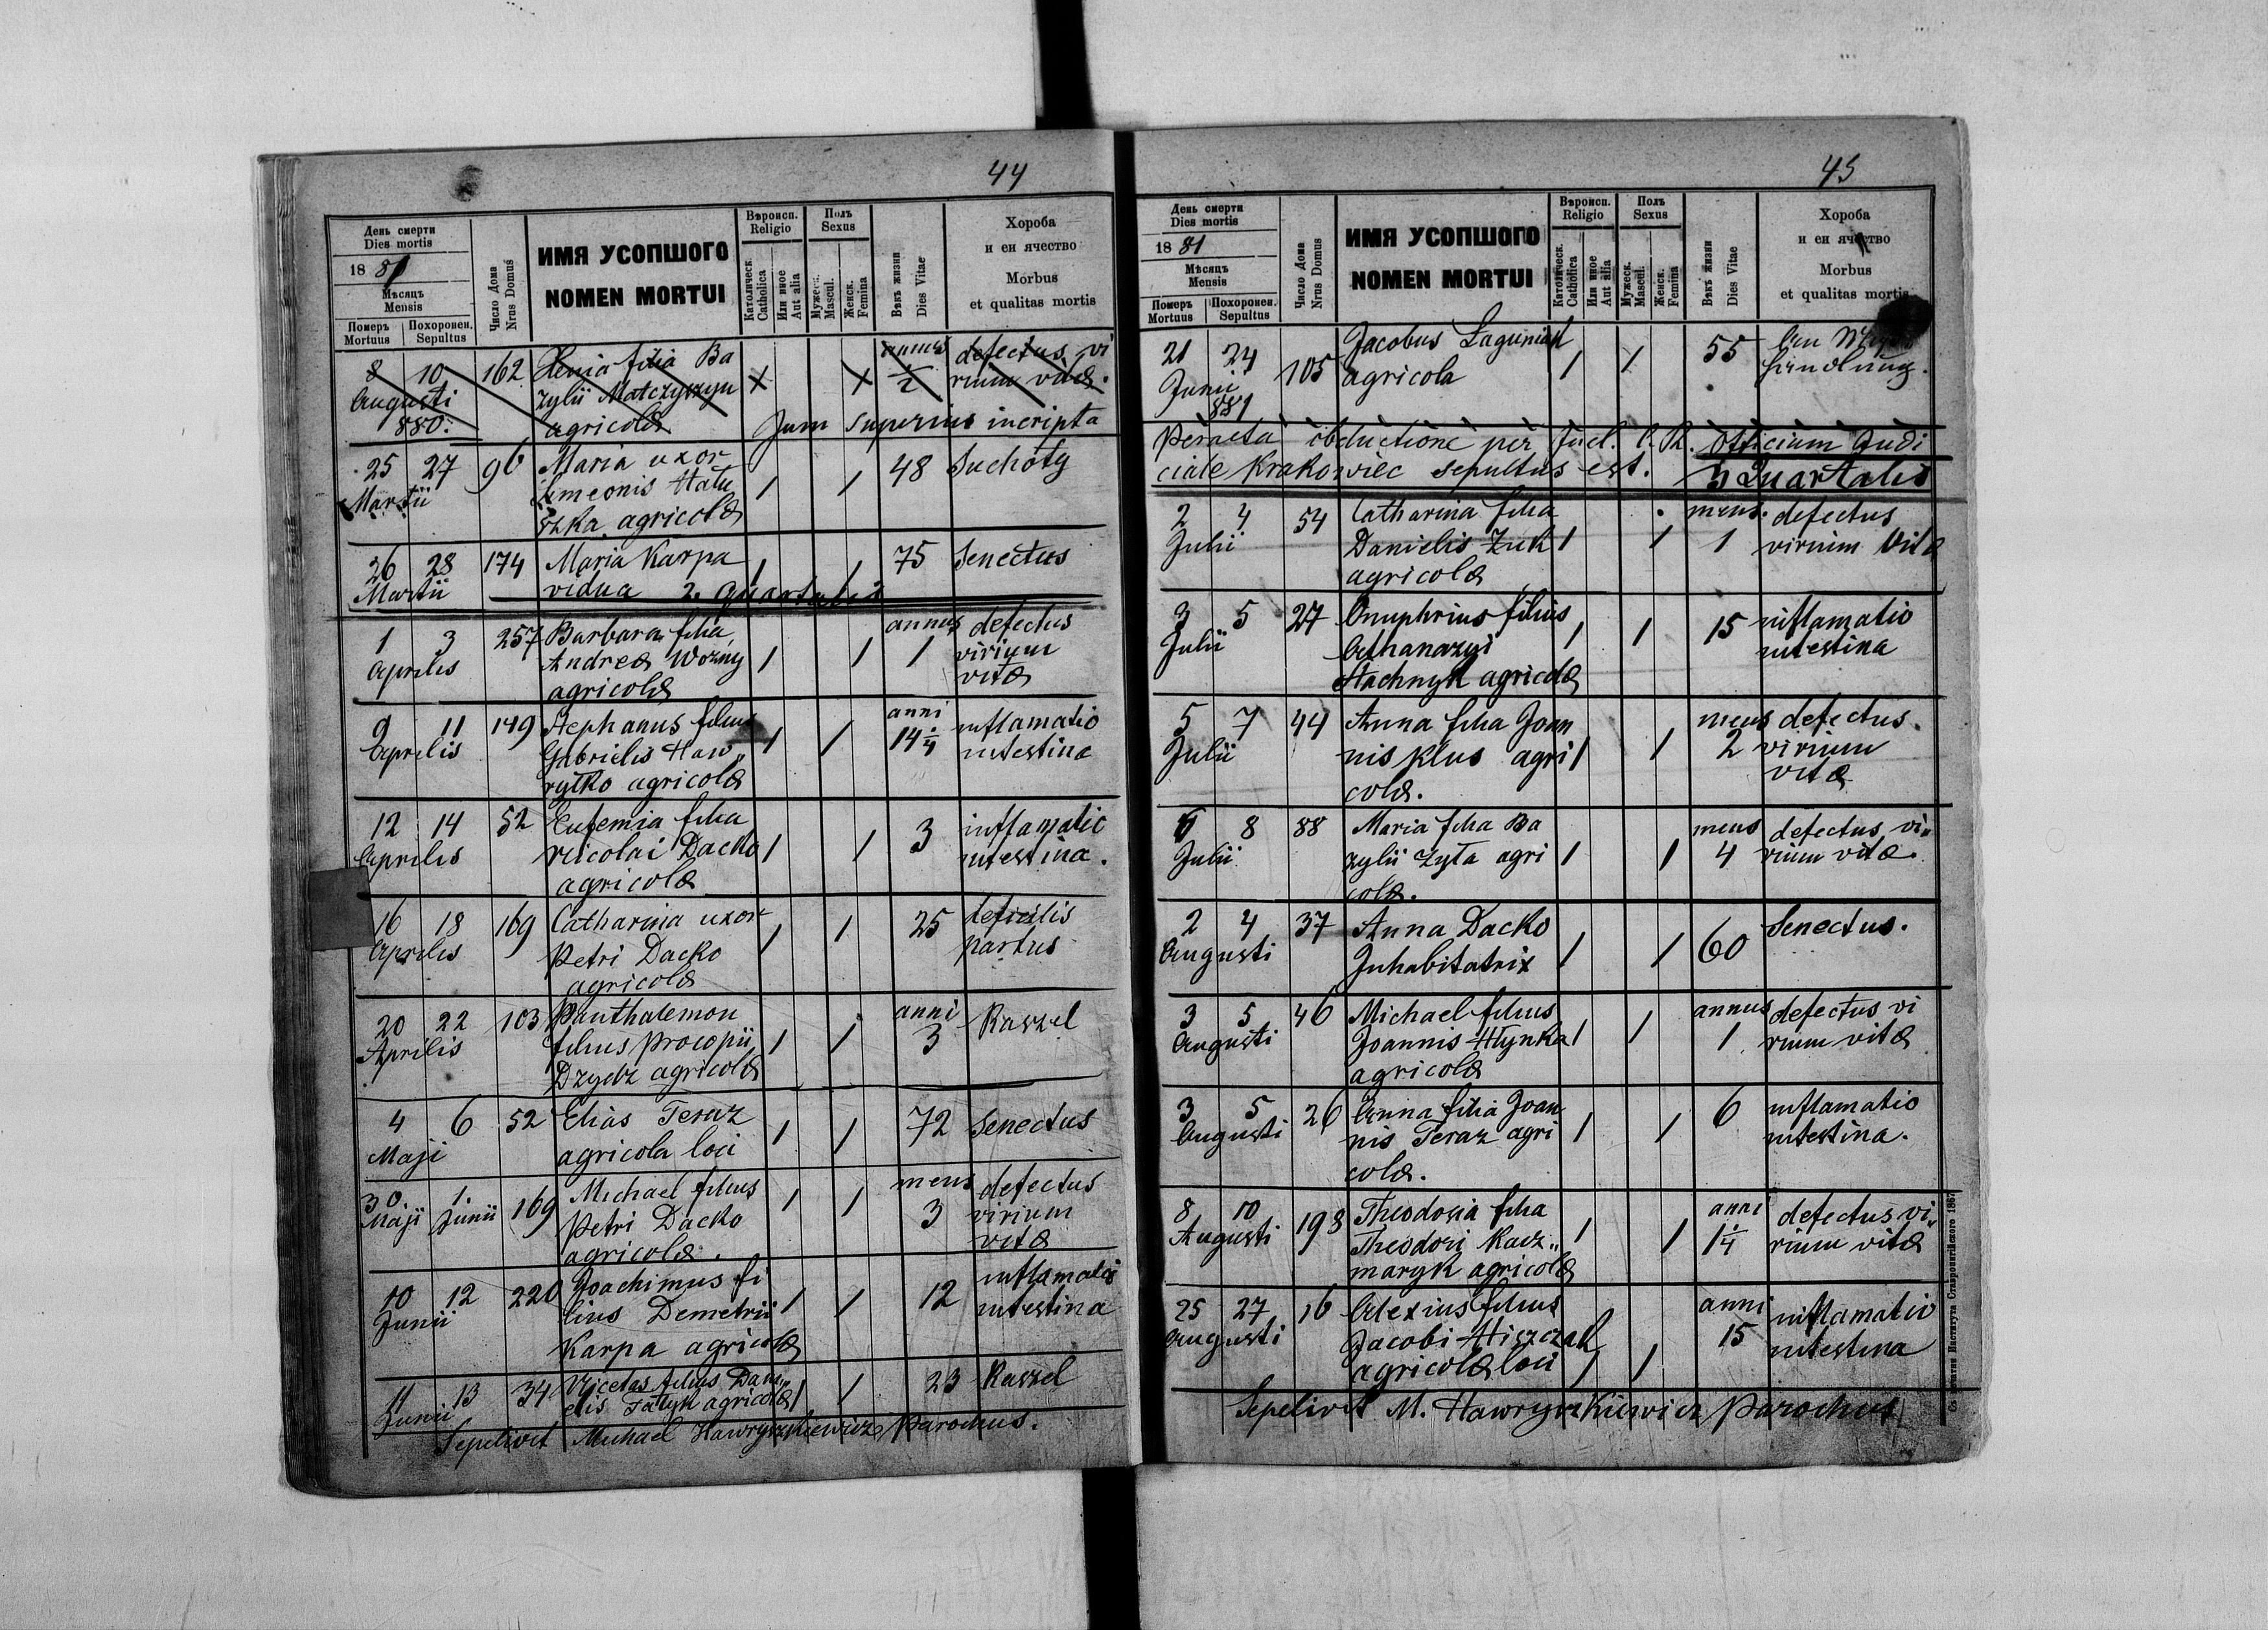 44
День смерти
Dies mortis
1881
Мѣсяцъ
Mensis
Померъ
Mortuus
Похоронен.
Sepultus
Число Дома
Nrus Domus
ИМЯ УСОПШОГО
NOMEN MORTUI
Вѣроисп.
Religio
Католическ.
Catholica
Или иное
Aut alia
Полъ
Sexus
Мужеск.
Mascul.
Женск.
Femina
Вѣкъ жизни
Dies Vitae
Хороба
и еи ячество
Morbus
et qualitas mortis
8 10 162 Xenia filia Ba annus defectus vi
Augusti zylii Matczyszyn X X 1/2 rium vitæ.
880. agricolæ Jam superius incripta
25 27 96 Maria uxor 48 Suchoty
Martii Simeonis Hatu / /
szka agricolæ
26 28 174 Maria Karpa / / 75 Senectus
Martii vidua 2. quartalis
1 3 257 Barbara filia annus defectus
Aprilis Andreæ Wozny / / 1 virium
agricolæ vitæ
9 11 149 Stephanus filius anni inflamatio
Aprilis Gabrielis Haw / / 14 1/4 intestina
rylko agricolæ
12 14 52 Eufemia filia 3 inflamatio
Aprilis Nicolai Dacko / / intestina.
agricolæ
16 18 169 Catharina uxor / / 25 deficilis
Aprilis Petri Dacko partus
agricolæ
20 22 103 Panthalemon anni Kaszel
Aprilis filius Procopii / / 3
Dzydz agricolæ
4 6 52 Elias Teraz / / 72 Senectus
Maji agricola loci
30 1. 169 Michael filius / / mens defectus
Maji Junii Petri Dacko 3 virium
agricolæ. vitæ
10 12 220 Joachimus fi inflamatio
Junii lius Demetrii / / 12 intestina
Karpa agricolæ
11 13 34 Nicetas filius Dani 23 Kaszel
Junii elis Fatyk agricolæ / /
Sepelivit Michael Hawryszkiewicz Parochus.
45
День смерти
Dies mortis
1881
Мѣсяцъ
Mensis
Померъ
Mortuus
Похоронен.
Sepultus
Число Дома
Nrus Domus
ИМЯ УСОПШОГО
NOMEN MORTUI
Вѣроисп.
Religio
Католическ.
Catholica
Или иное
Aut alia
Полъ
Sexus
Мужеск.
Mascul.
Женск.
Femina
Вѣкъ жизни
Dies Vitae
Хороба
и еи ячество
Morbus
et qualitas mortis
21 24 105 Jacobus Łaguniak / / 55
Junii agricola
881
Peracta obductione per Jud. C. R. Officium Judi
ciale Krakowiec sepultus est. 3 Quartalis
2 4 54 Catharina filia mens. defectus
Julii Danielis Zuk / / 1 virium vitæ
agricolæ
3 5 27 Onuphrius filius / / 15 inflamatio
Julii Athanazyi intestina
Stachnyk agricolæ
5 7 44 Anna filia Joan mens defectus
Julii nis Klus agri / / 2 virium
colæ. vitæ
6 8 88 Maria filia Ba mens defectus vi„
Julii zylii Zyła agri / / 4 rium vitæ.
colæ.
2 4 37 Anna Dacko Senectus.
Augusti Inhabitatrix / / 60
3 5 46 Michael filius annus defectus vi
Augusti Joannis Hłynka / / 1 rium vitæ
agricolæ
3 5 26 Anna filia Joan 6 inflamatio
Augusti nis Teraz agri / / intestina.
colæ.
8 10 198 Theodosia filia anni defectus vi„
Augusti Theodori Kacz„ / / 1 1/4 rium vitæ
maryk agricolæ
25 27 16 Alexius filius anni inflamatio
Augusti Jacobi Hiszczak 15 intestina
agricolæ loci / /
Sepelivit M. Hawryszkiewicz Parochus
Съ печатни Института Ставропигійского 1867